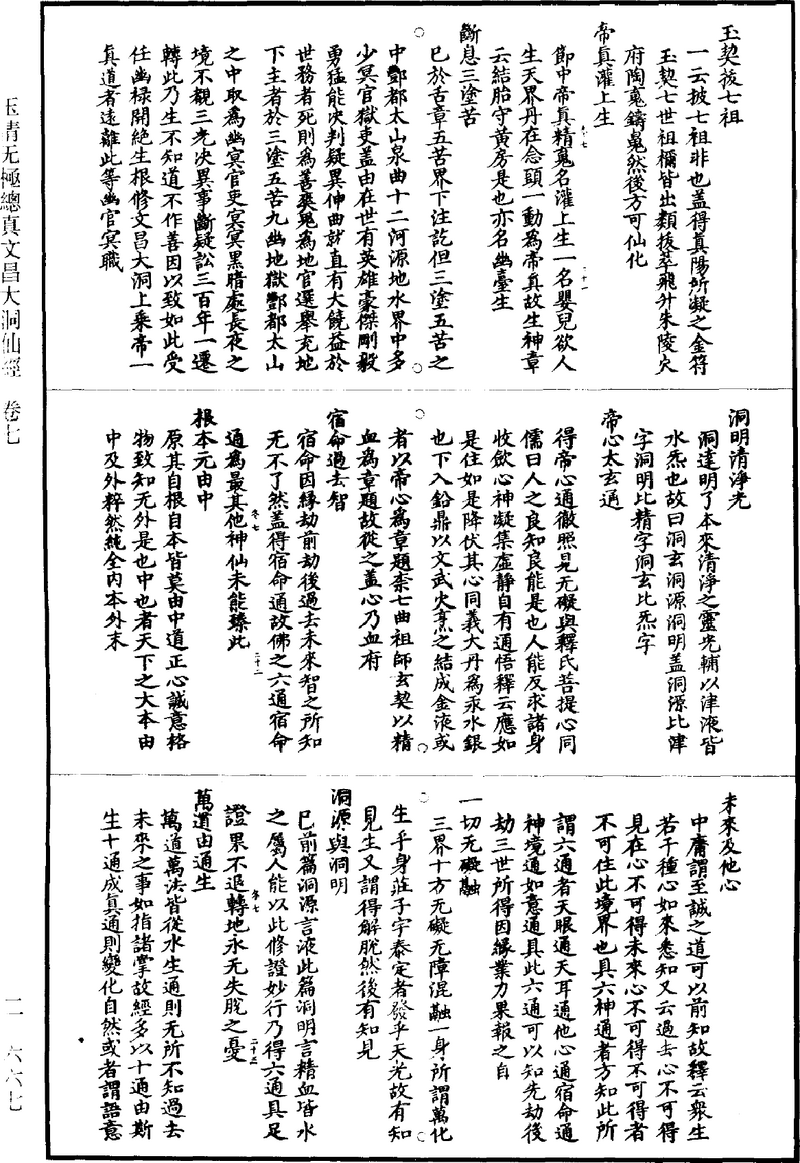 玉契拔七祖
一云披七祖非也蓋得真陽所凝之金符
玉契七世祖禰皆出類拔萃飛升朱陵火
府陶䰟鑄鬽然後方可仙化
帝真灌上生
節中帝真精䰟名灌上生一名嬰兒欲人
生天界丹在念頭一動為帝真故生神章
云結胎守黃房是也亦名幽臺生
斷息三塗苦
已於舌章五苦界下注訖但三塗五苦之
中酆都太山泉曲十二河源地水界中多
少冥官獄吏蓋由在世有英雄豪傑剛毅
勇猛能決判疑異伸曲就直有大饒益於
世務者死則為善爽鬼為地官選舉充地
下主者於三塗五苦九幽地獄酆都太山
之中取為幽冥官吏冥冥黑暗處長夜之
境不覩三光決異事斷疑訟三百年一遷
轉此乃生不知道不作善因以致如此受
任幽祿開絕生根修文昌大洞上乘帝一
真道者遠離此等幽官冥職
洞明清淨光
洞達明了本來清淨之靈光輔以津液皆
水炁也故曰洞玄洞源洞明蓋洞源比津
字洞明比精字洞玄比炁字
帝心太玄通
得帝心通徹照見无礙與釋氏菩提心同
儒曰人之良知良能是也人能反求諸身
收歛心神凝集虛靜自有通悟釋云應如
是住如是降伏其心同義大丹為汞水銀
也下入鉛鼎以文武火烹之結成金液或
者以帝心為章題柰七曲祖師玄契以精
血為章題故從之蓋心乃血府
宿命過去智
宿命因緣劫前劫後過去未來智之所知
无不了然蓋得宿命通故佛之六通宿命
通為最其他神仙未能臻此
根本元由中
原其自根自本皆莫由中道正心誠意格
物致知无外是也中也者天下之大本由
中及外粹然純全內本外末
未來及他心
中庸謂至誠之道可以前知故釋云衆生
若干種心如來悉知又云過去心不可得
見在心不可得未來心不可得不可得者
不可住此境界也具六神通者方知此所
謂六通者天眼通天耳通他心通宿命通
神境通如意通具此六通可以知先劫後
劫三世所得因緣業力果報之自
一切无礙融
三界十方无礙无障混融一身所謂萬化
生乎身莊子宇泰定者發乎天光故有知
見生又謂得解脫然後有知見
洞源與洞明
已前篇洞源言液此篇洞明言精血皆水
之屬人能以此修證妙行乃得六通具足
證果不退轉地永无失脫之憂
萬道由通生
萬道萬法皆從水生通則无所不知過去
未來之事如指諸掌故經多以十通由斯
生十通成真通則變化自然或者謂語意
玉清无極總真文昌大洞仙經 卷七
二一 六六七